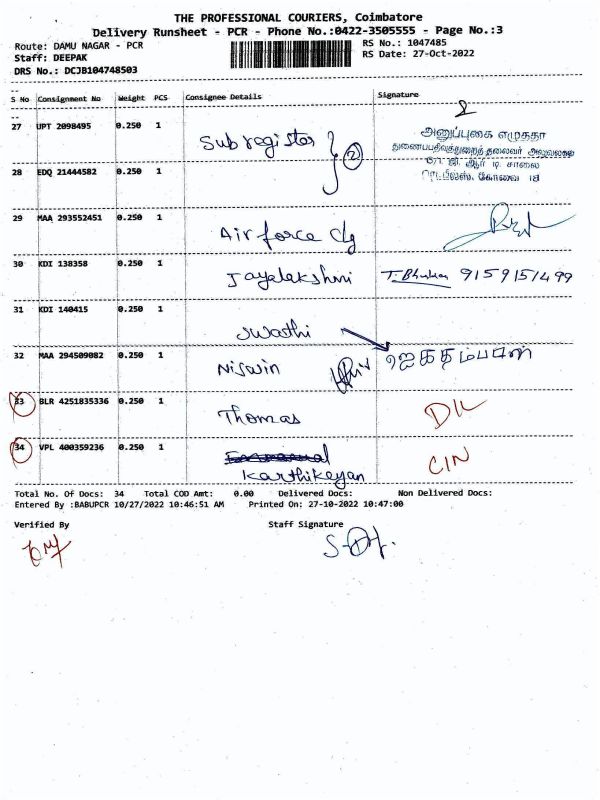 THE PROFESSIONAL COURIERS, Coimbatore
Delivery Runsheet - PCR - Phone No.:0422-3505555 - Page No.:3
Route: DAMU NAGAR - PCR
RS No.: 1047485
Staff: DEEPAK
RS Date: 27-Oct-2022
DRS No.: DCJB104748503
S No Consignment No Weight PCS Consignee Details Signature
27 UPT 2098495 0.250 1 Subregister
அனுப்புகை எழுத்தர்
28 EDQ 21444582 0.250 1 2
29 MAA 293552451 0.250 1 Air force
30 KDI 138358 0.250 1 Jayalakshmi T. 9159151499
31 KDI 140415 0.250 1 Swathi
32 MAA 294509082 0.250 1
33 BLR 4251835336 0.250 1 Thomas
34 VPL 400359236 0.250 1 Karthikeyan CIN
Total No. Of Docs: 34 Total COD Amt: 0.00 Delivered Docs: Non Delivered Docs:
Entered By :BABUPCR 10/27/2022 10:46:51 AM Printed On: 27-10-2022 10:47:00
Verified By Staff Signature